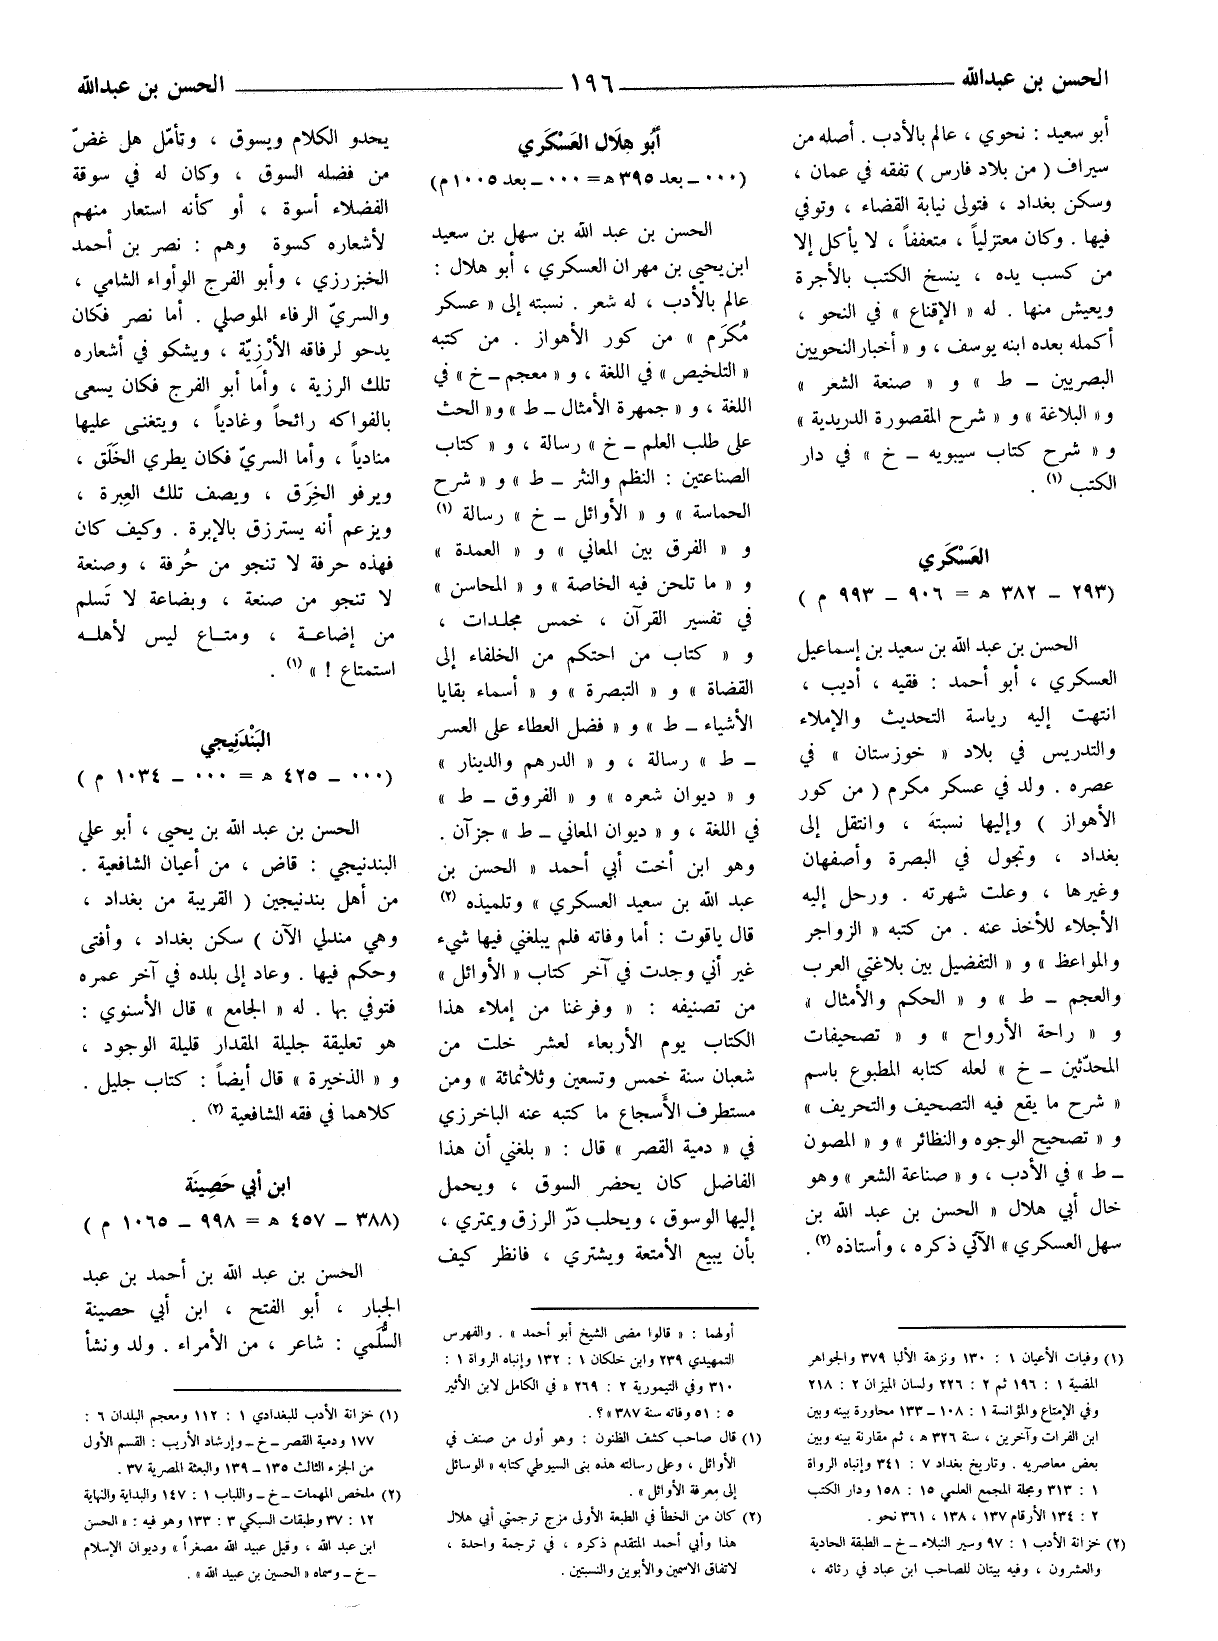 الحسن بن عبدالله ١٩٦ الحسن بن عبدالله
أبو سعيد : نحوي ، عالم بالأدب . أصله من
سيراف ( من بلاد فارس ) تفقه في عمان ،
وسكن بغداد ، فتولى نيابة القضاء ، وتوفي
فيها . وكان معتزلياً ، متعففاً ، لا يأكل إلا
من كسب يده ، ينسخ الكتب بالأجرة
ويعيش منها . له « الإقناع » في النحو ،
أكمله بعده ابنه يوسف ، و « أخبار النحويين
البصريين ــ ط » و « صنعة الشعر »
و « البلاغة » و « شرح المقصورة الدريدية »
و « شرح كتاب سيبويه ــ خ » في دار
الكتب (١) .
العَسْكَري
(٢٩٣ ــ ٣٨٢ هـ = ٩٠٦ ــ ٩٩٣ م )
الحسن بن عبد الله بن سعيد بن إسماعيل
العسكري ، أبو أحمد : فقيه ، أديب ،
انتهت إليه رياسة التحديث والإملاء
والتدريس في بلاد « خوزستان » في
عصره . ولد في عسكر مكرم ( من كور
الأهواز ) وإليها نسبته ، وانتقل إلى
بغداد ، وتجول في البصرة وأصفهان
وغيرها ، وعلت شهرته . ورحل إليه
الأجلاء للأخذ عنه . من كتبه « الزواجر
والمواعظ » و « التفضيل بين بلاغتي العرب
والعجم ــ ط » و « الحكم والأمثال »
و « راحة الأرواح » و « تصحيفات
المحدّثين ــ خ » لعله كتابه المطبوع باسم
« شرح ما يقع فيه التصحيف والتحريف »
و « تصحيح الوجوه والنظائر » و « المصون
ــ ط » في الأدب ، و « صناعة الشعر » وهو
خال أبي هلال « الحسن بن عبد الله بن
سهل العسكري » الآتي ذكره ، وأستاذه (٢) .
(١) وفيات الأعيان ١ : ١٣٠ ونزهة الألبا ٣٧٩ والجواهر
المضية ١ : ١٩٦ ثم ٢ : ٢٢٦ ولسان الميزان ٢ : ٢١٨
وفي الإمتاع والمؤانسة ١ : ١٠٨ ــ ١٣٣ محاورة بينه وبين
ابن الفرات وآخرين ، سنة ٣٢٦ هـ ، ثم مقارنة بينه وبين
بعض معاصريه . وتاريخ بغداد ٧ : ٣٤١ وإنباه الرواة
١ : ٣١٣ ومجلة المجمع العلمي ١٥ : ١٥٨ ودار الكتب
٢ : ١٣٤ الأرقام ١٣٧ ، ١٣٨ ، ٣٦١ نحو .
(٢) خزانة الأدب ١ : ٩٧ وسير النبلاء ــ خ ــ الطبقة الحادية
والعشرون ، وفيه بيتان للصاحب ابن عباد في رثائه ،
أبُو هِلَال العَسْكَري
(٠٠٠ ــ بعد ٣٩٥ هـ = ٠٠٠ ــ بعد ١٠٠٥ م)
الحسن بن عبد الله بن سهل بن سعيد
ابن يحيى بن مهران العسكري ، أبو هلال :
عالم بالأدب ، له شعر . نسبته إلى « عسكر
مُكرَم » من كور الأهواز . من كتبه
« التلخيص » في اللغة ، و « معجم ــ خ » في
اللغة ، و « جمهرة الأمثال ــ ط » و « الحث
على طلب العلم ــ خ » رسالة ، و « كتاب
الصناعتين : النظم والنثر ــ ط » و « شرح
الحماسة » و « الأوائل ــ خ » رسالة (١)
و « الفرق بين المعاني » و « العمدة »
و « ما تلحن فيه الخاصة » و « المحاسن »
في تفسير القرآن ، خمس مجلدات ،
و « كتاب من احتكم من الخلفاء إلى
القضاة » و « التبصرة » و « أسماء بقايا
الأشياء ــ ط » و « فضل العطاء على العسر
ــ ط » رسالة ، و « الدرهم والدينار »
و « ديوان شعره » و « الفروق ــ ط »
في اللغة ، و « ديوان المعاني ــ ط » جزآن .
وهو ابن أخت أبي أحمد « الحسن بن
عبد الله بن سعيد العسكري » وتلميذه (٢)
قال ياقوت : أما وفاته فلم يبلغني فيها شيء
غير أني وجدت في آخر كتاب « الأوائل »
من تصنيفه : « وفرغنا من إملاء هذا
الكتاب يوم الأربعاء لعشر خلت من
شعبان سنة خمس وتسعين وثلاثمائة » ومن
مستطرف الأسجاع ما كتبه عنه الباخرزي
في « دمية القصر » قال : « بلغني أن هذا
الفاضل كان يحضر السوق ، ويحمل
إليها الوسوق ، ويحلب دَرّ الرزق ويمتري ،
بأن يبيع الأمتعة ويشتري ، فانظر كيف
أولهما : « قالوا مضى الشيخ أبو أحمد » . والفهرس
التمهيدي ٢٣٩ وابن خلكان ١ : ١٣٢ وإنباه الرواة ١ :
٣١٠ وفي التيمورية ٢ : ٢٦٩ « في الكامل لابن الأثير
٥ : ٥١ وفاته سنة ٣٨٧ » ؟ .
(١) قال صاحب كشف الظنون : وهو أول من صنف في
الأوائل ، وعلى رسالته هذه بنى السيوطي كتابه « الوسائل
إلى معرفة الأوائل » .
(٢) كان من الخطأ في الطبعة الأولى مزج ترجمتي أبي هلال
هذا وأبي أحمد المتقدم ذكره ، في ترجمة واحدة ،
لاتفاق الاسمين والأبوين والنسبتين .
يحدو الكلام ويسوق ، وتأمّل هل غضّ
من فضله السوق ، وكان له في سوقة
الفضلاء أسوة ، أو كأنه استعار منهم
لأشعاره كسوة وهم : نصر بن أحمد
الخبزرزي ، وأبو الفرج الوأواء الشامي ،
والسريّ الرفاء الموصلي . أما نصر فكان
يدحو لرفاقه الأرْزِيّة ، ويشكو في أشعاره
تلك الرزية ، وأما أبو الفرج فكان يسعى
بالفواكه رائحاً وغادياً ، ويتغنى عليها
منادياً ، وأما السريّ فكان يطري الخَلَق ،
ويرفو الخِرَق ، ويصف تلك العِبرة ،
ويزعم أنه يسترزق بالإبرة . وكيف كان
فهذه حرفة لا تنجو من حُرفة ، وصنعة
لا تنجو من صنعة ، وبضاعة لا تَسلم
من إضاعـة ، ومتـاع ليس لأهلـه
استمتاع ! » (١) .
البَنْدَنِيجي
(٠٠٠ ــ ٤٢٥ هـ = ٠٠٠ ــ ١٠٣٤ م )
الحسن بن عبد الله بن يحيى ، أبو علي
البندنيجي : قاض ، من أعيان الشافعية .
من أهل بندنيجين ( القريبة من بغداد ،
وهي مندلي الآن ) سكن بغداد ، وأفتى
وحكم فيها . وعاد إلى بلده في آخر عمره
فتوفي بها . له « الجامع » قال الأسنوي :
هو تعليقة جليلة المقدار قليلة الوجود ،
و « الذخيرة » قال أيضاً : كتاب جليل .
كلاهما في فقه الشافعية (٢) .
ابن أبي حَصِينَة
(٣٨٨ ــ ٤٥٧ هـ = ٩٩٨ ــ ١٠٦٥ م)
الحسن بن عبد الله بن أحمد بن عبد
الجبار ، أبو الفتح ، ابن أبي حصينة
السُّلَمي : شاعر ، من الأمراء . ولد ونشأ
(١) خزانة الأدب للبغدادي ١ : ١١٢ ومعجم البلدان ٦ :
١٧٧ ودمية القصر ــ خ ــ وإرشاد الأريب : القسم الأول
من الجزء الثالث ١٣٥ ــ ١٣٩ والبعثة المصرية ٣٧ .
(٢) ملخص المهمات ــ خ ــ واللباب ١ : ١٤٧ والبداية والنهاية
١٢ : ٣٧ وطبقات السبكي ٣ : ١٣٣ وهو فيه : « الحسن
ابن عبد الله ، وقيل عبيد الله مصغراً » وديوان الإسلام
ــ خ ــ وسماه « الحسين بن عبيد الله » .